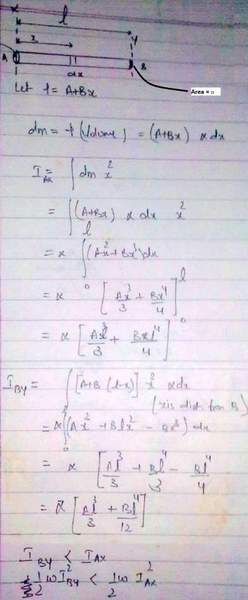 x l y
x
A dx B
Area = α
Let f = A+Bx
dm = f (Volume) = (A+Bx) α dx
I_AX = ∫ dm x²
= ∫ (A+Bx) α dx x²
= α ∫₀^l (Ax²+Bx³) dx
= α [Ax³/3 + Bx⁴/4]₀^l
= α [Al³/3 + Bl⁴/4]
I_BY = ∫ [A+B(l-x)] x² α dx
(x is dist from B)
= α ∫ (Ax² + Blx² - Bx³) dx
= α [Al³/3 + Bl⁴/3 - Bl⁴/4]
= α [Al³/3 + Bl⁴/12]
I_BY < I_AX
½ω I_BY² < ½ω I_AX²